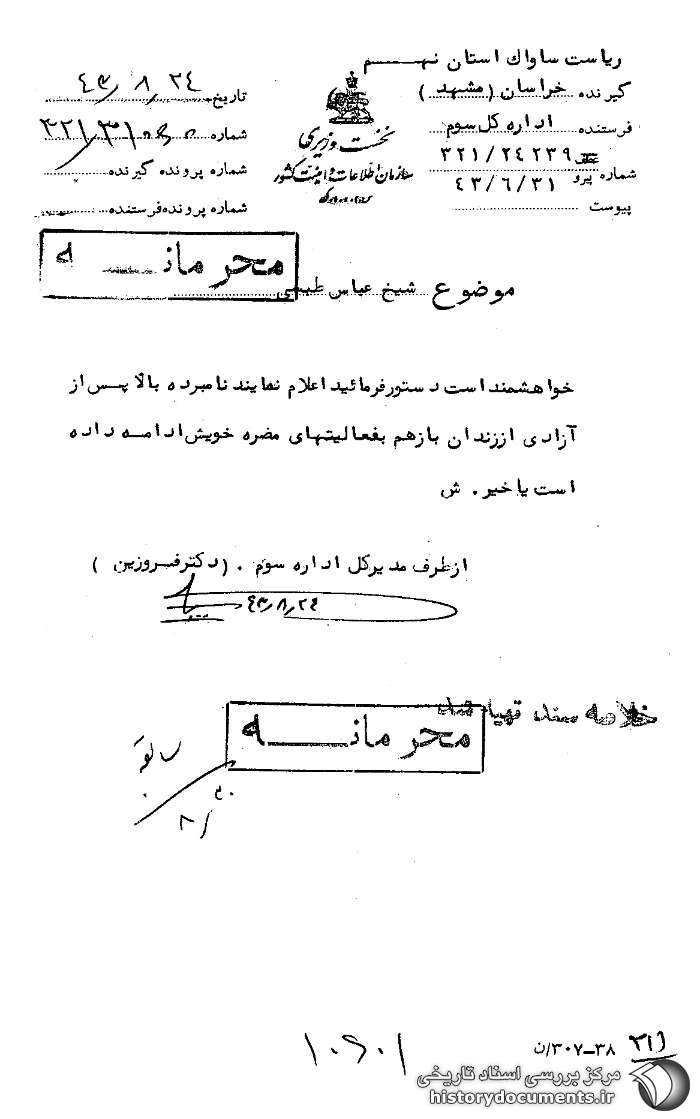 ریاست ساواك استان نهم
گیرنده خراسان (مشهد)
فرستنده اداره كل سوم
۳۲۱/۲٤۲۳۹
شماره پیرو ٤۳/٦/۳۱
پیوست
نخست وزیری
سازمان اطلاعات و امنیت کشور
تاریخ ٤۳/۸/۲٤
شماره
شماره پرونده گیرنده
شماره پرونده فرستنده
محرمانه
موضوع شیخ عباس طبسی
خواهشمند است دستور فرمائید اعلام نمایند نامبرده بالا پس از
آزادی از زندان بازهم بفعالیتهای مضره خویش ادامه داده
است یا خیر . ش
از طرف مدیر کل اداره سوم . (دکتر فروزین)
٤۳/۸/۲٤
خلاصه سند تهیه شد
محرمانه
سابقه
۳۸-۳۰۷/ن
مرکز بررسی اسناد تاریخی
historydocuments.ir